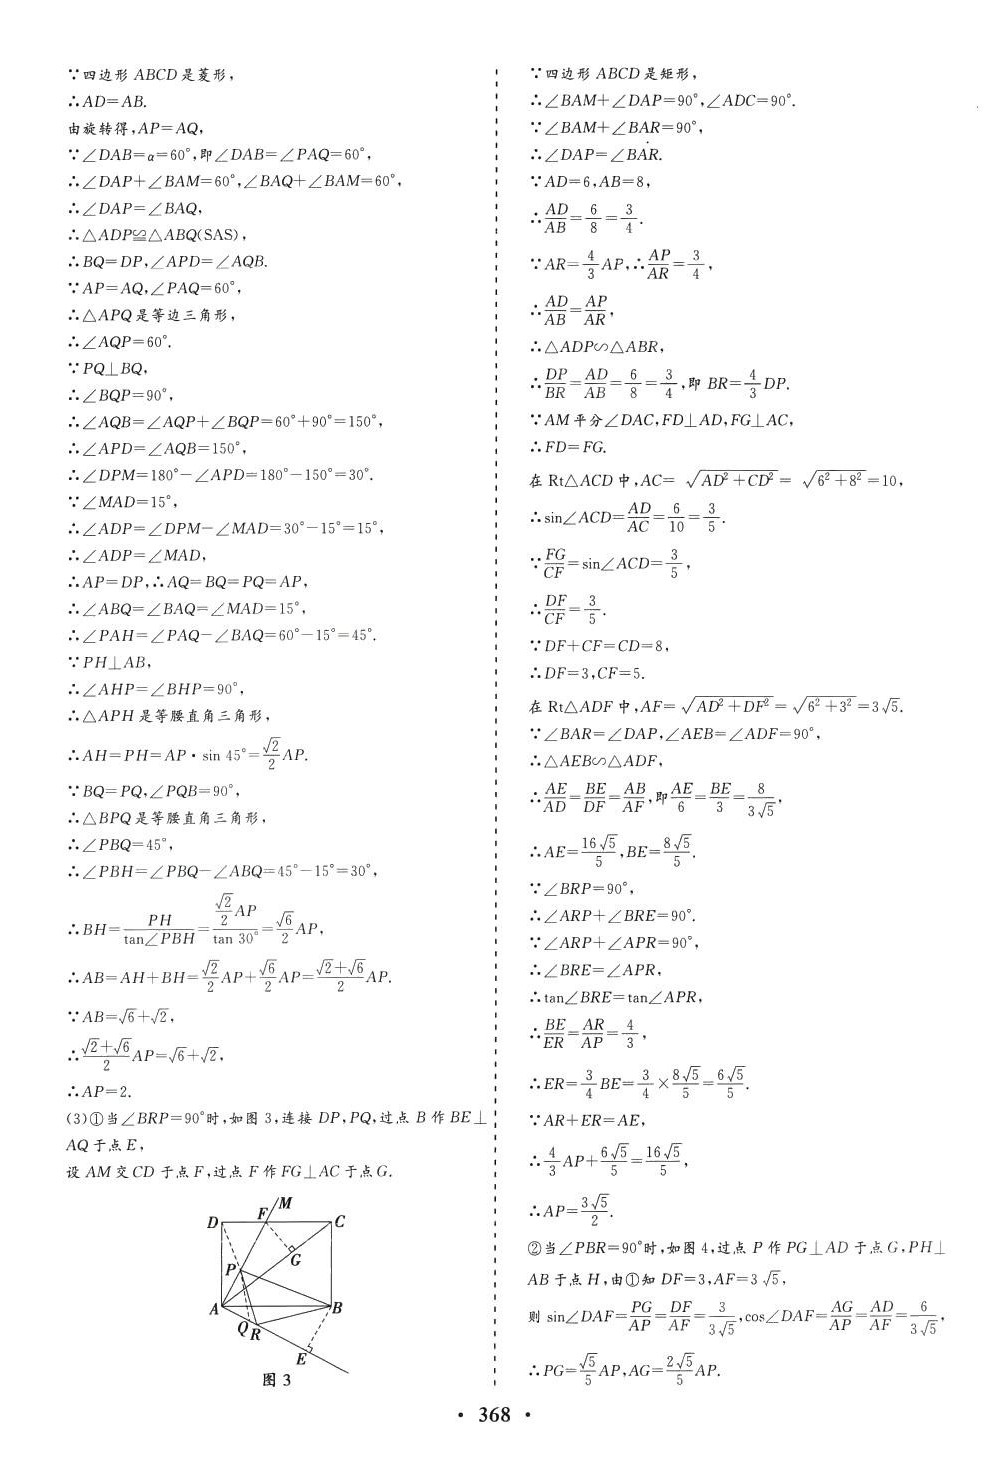 ∵四边形 ABCD 是菱形,
∴AD=AB.
由旋转得,AP=AQ,
∵∠DAB=α=60°,即∠DAB=∠PAQ=60°,
∴∠DAP+∠BAM=60°,∠BAQ+∠BAM=60°,
∴∠DAP=∠BAQ,
∴△ADP≌△ABQ(SAS),
∴BQ=DP,∠APD=∠AQB.
∵AP=AQ,∠PAQ=60°,
∴△APQ 是等边三角形,
∴∠AQP=60°.
∵PQ⊥BQ,
∴∠BQP=90°,
∴∠AQB=∠AQP+∠BQP=60°+90°=150°,
∴∠APD=∠AQB=150°,
∴∠DPM=180°-∠APD=180°-150°=30°.
∵∠MAD=15°,
∴∠ADP=∠DPM-∠MAD=30°-15°=15°,
∴∠ADP=∠MAD,
∴AP=DP,∴AQ=BQ=PQ=AP,
∴∠ABQ=∠BAQ=∠MAD=15°,
∴∠PAH=∠PAQ-∠BAQ=60°-15°=45°.
∵PH⊥AB,
∴∠AHP=∠BHP=90°,
∴△APH 是等腰直角三角形,
∴AH=PH=AP·sin 45°=√2/2 AP.
∵BQ=PQ,∠PQB=90°,
∴△BPQ 是等腰直角三角形,
∴∠PBQ=45°,
∴∠PBH=∠PBQ-∠ABQ=45°-15°=30°,
∴BH=PH/tan∠PBH=(√2/2 AP)/tan 30°=√6/2 AP,
∴AB=AH+BH=√2/2 AP+√6/2 AP=(√2+√6)/2 AP.
∵AB=√6+√2,
∴(√2+√6)/2 AP=√6+√2,
∴AP=2.
(3)①当∠BRP=90°时,如图 3,连接 DP,PQ,过点 B 作 BE⊥
AQ 于点 E,
设 AM 交 CD 于点 F,过点 F 作 FG⊥AC 于点 G.
M
D F C
G
P
A B
Q R
E
图 3
∵四边形 ABCD 是矩形,
∴∠BAM+∠DAP=90°,∠ADC=90°.
∵∠BAM+∠BAR=90°,
∴∠DAP=∠BAR.
∵AD=6,AB=8,
∴AD/AB=6/8=3/4.
∵AR=4/3 AP,∴AP/AR=3/4,
∴AD/AB=AP/AR,
∴△ADP∽△ABR,
∴DP/BR=AD/AB=6/8=3/4,即 BR=4/3 DP.
∵AM 平分∠DAC,FD⊥AD,FG⊥AC,
∴FD=FG.
在 Rt△ACD 中,AC=√(AD²+CD²)=√(6²+8²)=10,
∴sin∠ACD=AD/AC=6/10=3/5.
∵FG/CF=sin∠ACD=3/5,
∴DF/CF=3/5.
∵DF+CF=CD=8,
∴DF=3,CF=5.
在 Rt△ADF 中,AF=√(AD²+DF²)=√(6²+3²)=3√5.
∵∠BAR=∠DAP,∠AEB=∠ADF=90°,
∴△AEB∽△ADF,
∴AE/AD=BE/DF=AB/AF,即AE/6=BE/3=8/(3√5),
∴AE=16√5/5,BE=8√5/5.
∵∠BRP=90°,
∴∠ARP+∠BRE=90°.
∵∠ARP+∠APR=90°,
∴∠BRE=∠APR,
∴tan∠BRE=tan∠APR,
∴BE/ER=AR/AP=4/3,
∴ER=3/4 BE=3/4×8√5/5=6√5/5.
∵AR+ER=AE,
∴4/3 AP+6√5/5=16√5/5,
∴AP=3√5/2.
②当∠PBR=90°时,如图 4,过点 P 作 PG⊥AD 于点 G,PH⊥
AB 于点 H,由①知 DF=3,AF=3√5,
则 sin∠DAF=PG/AP=DF/AF=3/(3√5),cos∠DAF=AG/AP=AD/AF=6/(3√5),
∴PG=√5/5 AP,AG=2√5/5 AP.
· 368 ·